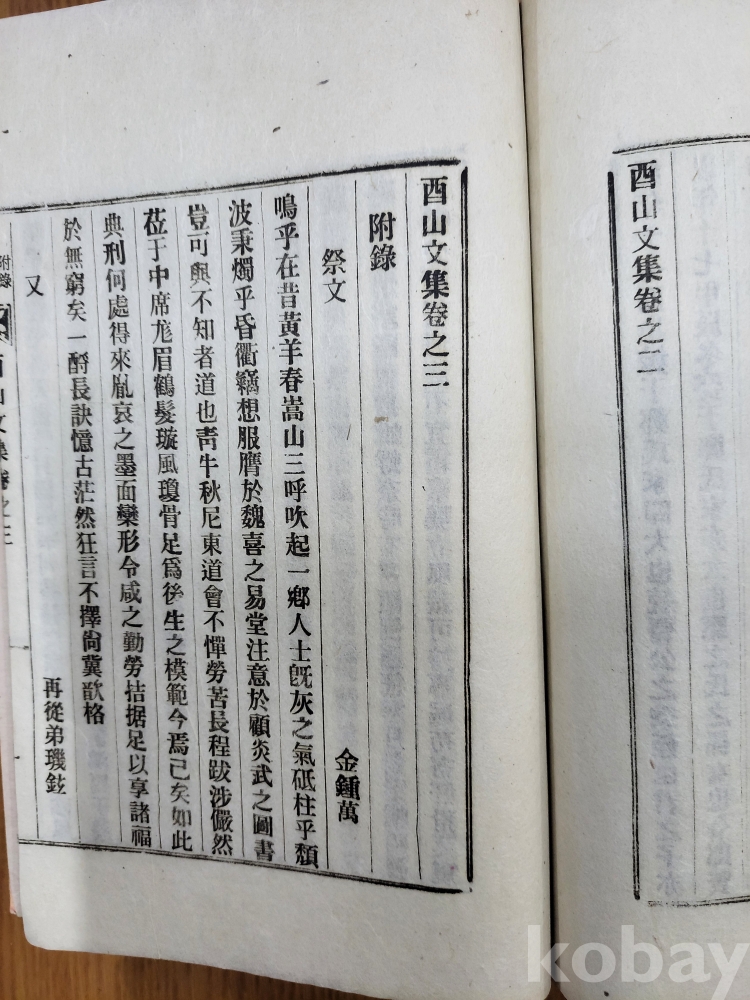 酉山文集卷之二
酉山文集卷之三
附錄
祭文
金鍾萬
嗚乎在昔黃羊春嵩山三呼吹起一鄕人士旣灰之氣砥柱乎頹
波秉燭乎昏衢竊想服膺於魏喜之易堂注意於顧炎武之圖書
豈可與不知者道也靑牛秋尼東道會不憚勞苦長程跋涉儼然
莅于中席尨眉鶴髮璇風瓊骨足爲後生之模範今焉已矣如此
典刑何處得來胤哀之墨面欒形令咸之勤勞拮据足以享諸福
於無窮矣一酹長訣憶古茫然狂言不擇尙冀歆格
又
再從弟璣鉉
附錄
酉山文集卷之三
kobay